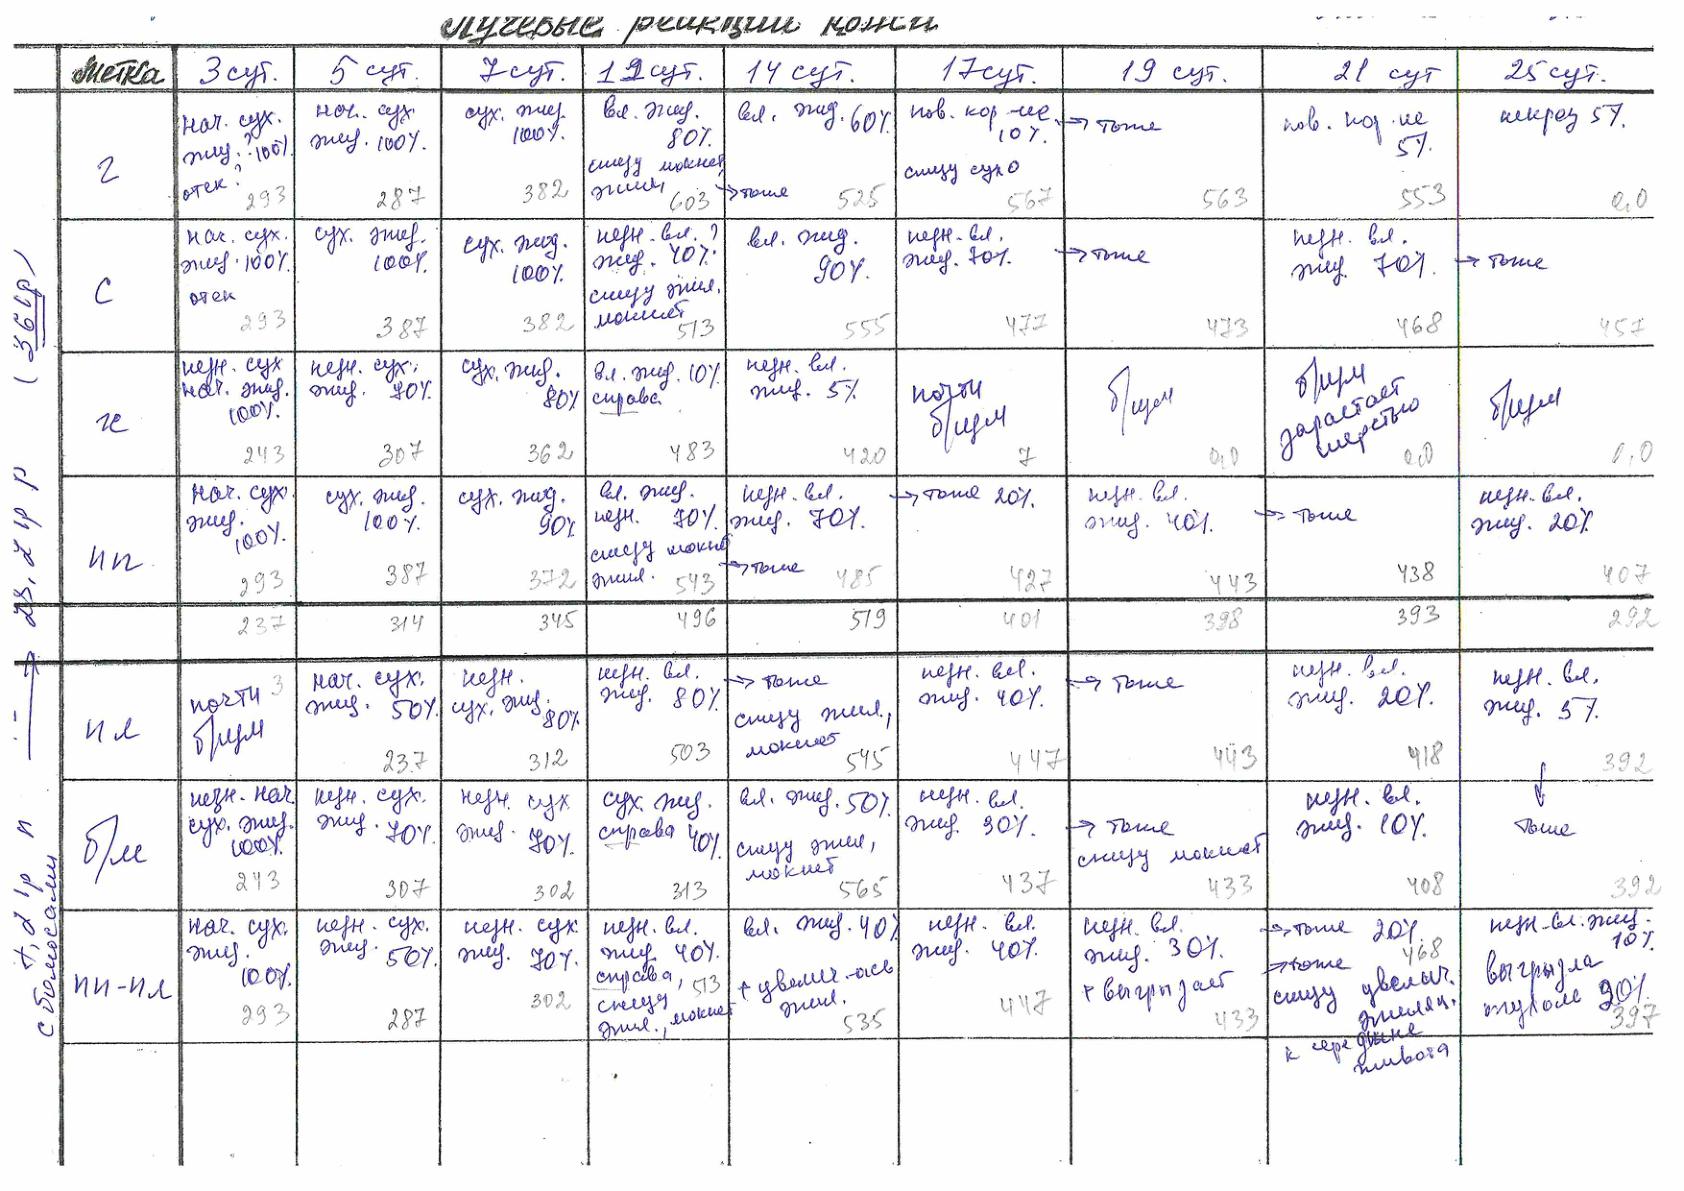 Лучевые реакции кожи
Метка 3 сут. 5 сут. 7 сут. 12 сут. 14 сут. 17 сут. 19 сут. 21 сут 25 сут.
Г
нач. сух.
эпид.? 100%
отек?
293
нач. сух
эпид. 100%
287
сух. эпид
100%
382
вл. эпид.
80%
снизу мокнет,
эпил
603
вл. эпид. 60%
→ тоже
525
пов. кор-ие
10%
снизу сухо
567
→ тоже
563
пов. кор-ие
5%
553
некроз 5%
0,0
С
нач. сух.
эпид. 100%
отек
293
сух. эпид.
100%
387
сух. эпид.
100%
382
незн. вл.?
эпид. 40%
снизу эпил.
мокнет
513
вл. эпид.
90%
555
незн. вл.
эпид. 70%
477
→ тоже
473
незн. вл.
эпид. 70%
468
→ тоже
457
незн. сух
нач. эпид.
100%
243
незн. сух.
эпид. 70%
307
сух. эпид.
80%
362
вл. эпид. 10%
справа
483
незн. вл.
эпид. 5%
420
почти
б/изм
7
б/изм
0,0
б/изм
зарастает
шерстью
0,0
б/изм
0,0
пп
нач. сух.
эпид.
100%
293
сух. эпид.
100%
387
сух. эпид.
90%
372
вл. эпид.
незн. 70%
снизу мокнет
эпил.
543
незн. вл.
эпид. 70%
→ тоже
485
→ тоже 20%
427
незн. вл.
эпид. 40%
443
→ тоже
438
незн. вл.
эпид. 20%
407
237 314 345 496 519 401 398 393 292
пл
почти 3
б/изм
нач. сух.
эпид. 50%
237
незн.
сух. эпид.
80%
312
незн. вл.
эпид. 80%
503
→ тоже
снизу эпил.,
мокнет
545
незн. вл.
эпид. 40%
447
→ тоже
443
незн. вл.
эпид. 20%
418
незн. вл.
эпид. 5%
392
б/м
незн. нач.
сух. эпид.
100%
243
незн. сух.
эпид. 70%
307
незн. сух
эпид. 70%
302
сух. эпид.
справа 40%
313
вл. эпид. 50%
снизу эпил,
мокнет
565
незн. вл.
эпид. 30%
437
→ тоже
снизу мокнет
433
незн. вл.
эпид. 10%
408
↓
тоже
392
пп-пл
нач. сух.
эпид.
100%
293
незн. сух.
эпид. 50%
287
незн. сух
эпид. 70%
302
незн. вл.
эпид. 40%
справа, 513
снизу
эпил., мокнет
вл. эпид. 40%
+ увелич-ась
эпил.
535
незн. вл.
эпид. 40%
447
незн. вл.
эпид. 30%
+ выгрызает
433
→ тоже 20%
468
→ тоже
снизу увелич.
эпиляц.
к середине
живота
незн. вл. эпид.
10%
выгрызла
90%
397
(36 Гр)
с болюсами